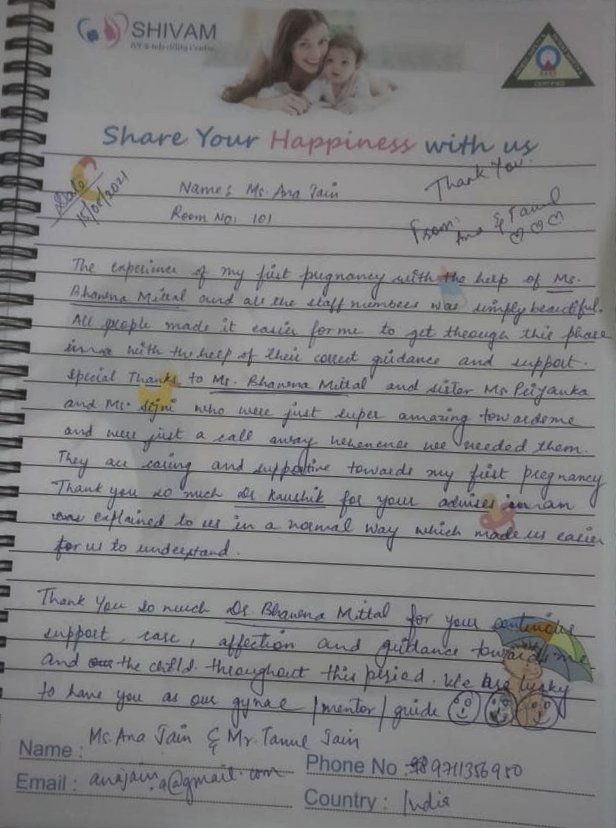 SHIVAM
IVF & Infertility Centre
CERTIFIED
Share Your Happiness with us
Date
15/04/2021
Name: Ms. Ana Jain
Room No: 101
Thank You.
From:
Ana & Tanul
The experience of my first pregnancy with the help of Ms.
Bhawna Mittal and all the staff numbers was simply beautiful.
All people made it easier for me to get through this phase
with the help of their correct guidance and support.
Special Thanks to Ms. Bhawna Mittal and sister Ms Priyanka
and Ms. Sijni who were just super amazing towards me
and were just a call away whenever we needed them.
They are caring and supportive towards my first pregnancy
Thank you so much Dr Kaushik for your advises
explained to us in a normal way which made us easier
for us to understand.
Thank You so much Dr Bhawna Mittal for your continous
support, care, affection and guidance towards me
and the child throughout this period. We are lucky
to have you as our gynae / mentor / guide
Name : Ms. Ana Jain & Mr. Tanul Jain
Phone No : 9711356950
Email : anajain.a@gmail.com
Country : India